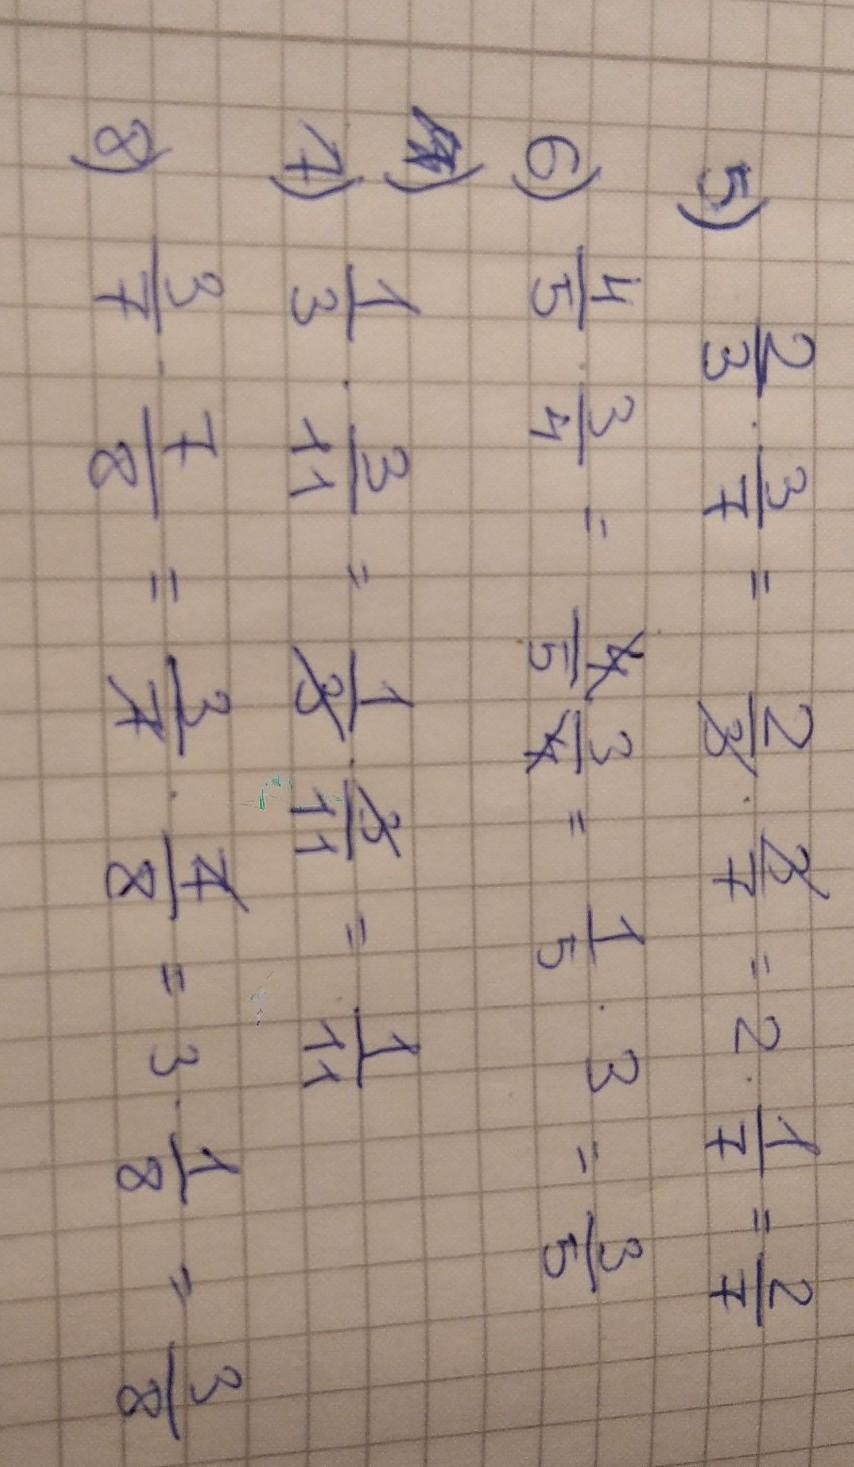 5) 2/3 · 3/7 = 2/3 · 3/7 = 2 · 1/7 = 2/7
6) 4/5 · 3/4 = 4/5 3/4 = 1/5 · 3 = 3/5
)
7) 1/3 · 3/11 = 1/3 · 3/11 = 1/11
8) 3/7 · 7/8 = 3/7 · 7/8 = 3 · 1/8 = 3/8